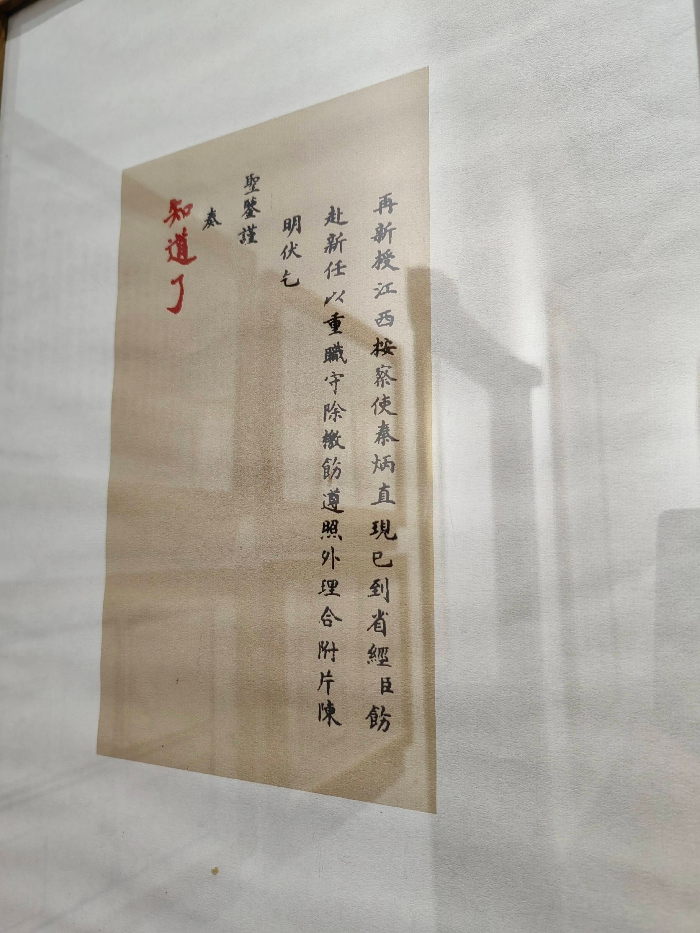 再新授江西按察使秦炳直現已到省經臣飭
赴新任以重職守除檄飭遵照外理合附片陳
明伏乞
聖鑒謹
奏
知道了